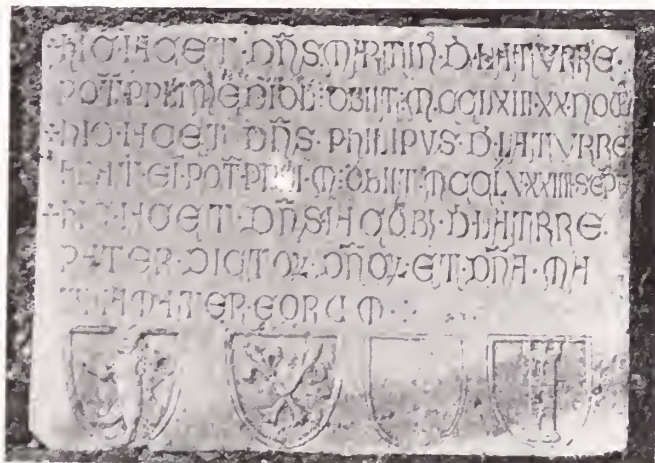 +HIC·IACET·DN̄S·MARTIN'·D'·LA·TVRRE·
POT̄·PPĪ·MEDIOL̄·OBIIT·M·CCLXIII·XX·NOṼ
+HIC·IACET·DN̄S·PHILIPVS·D'·LA·TVRRE
POT̄ OBIIT·MCCLXV·XXIIII·SEP
+HIC·IACET·DN̄S·IACOBI·D'·LA·TRRE·
PATER·DICTOꝝ·DN̄Oꝝ·ET·DN̄A·MA
MATER·EORUM